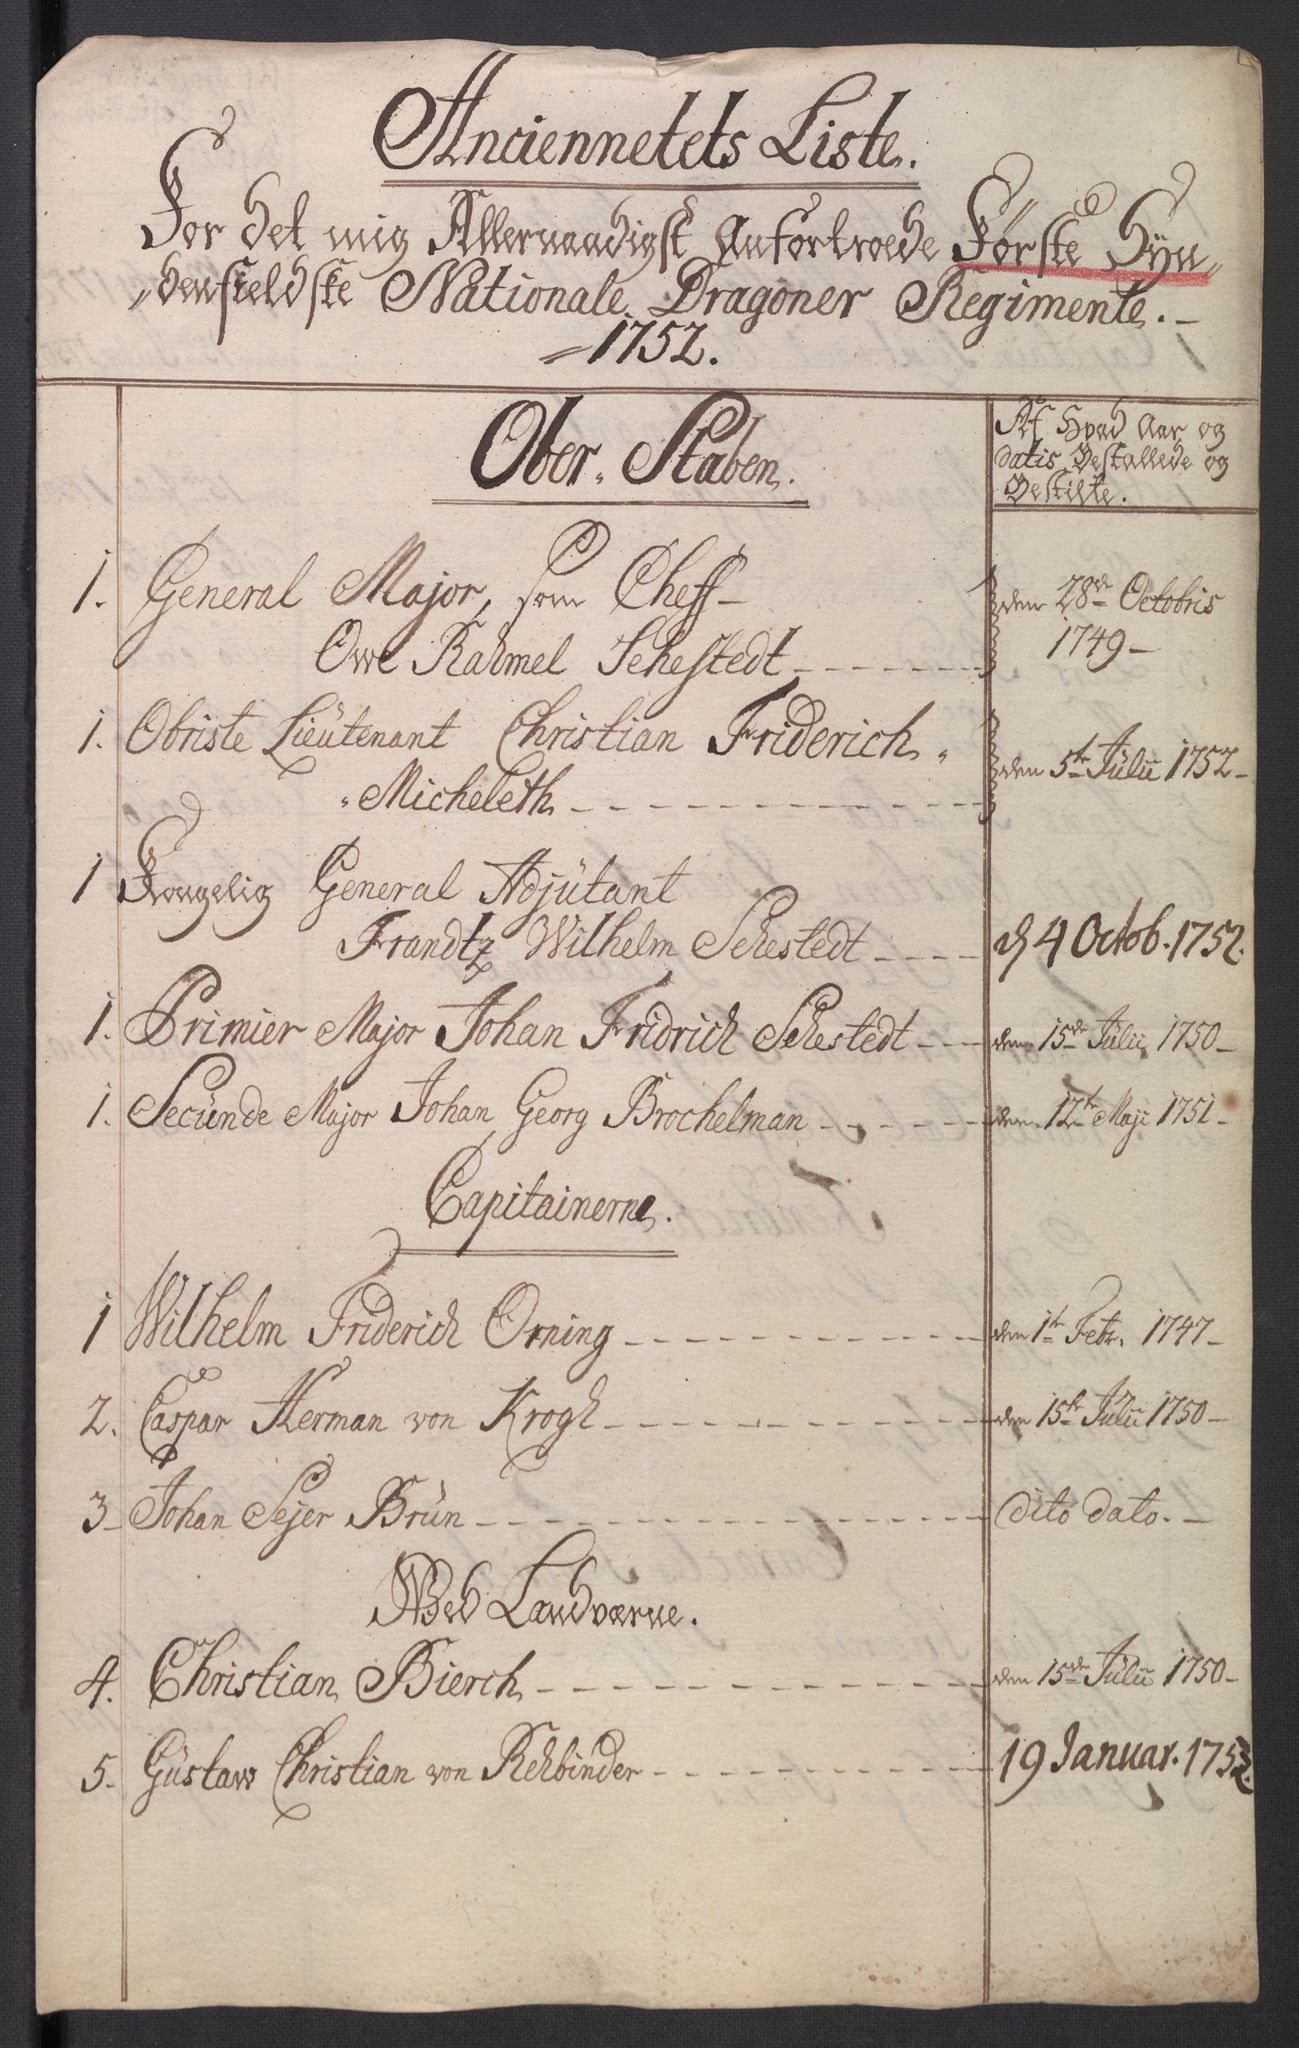 Anciennetets Liste.
For det mig Allernaadigst Anfortroede Første Syn„
„denfieldske Nationale Dragoner Regimente.
1752.
Ober-Staben.
Af Hvad Aar og
datis Bestallede og
Bestilte.
1. General Major, som Cheff
den 28de Octobris
Owe Rahmel Sehestedt
1749
1. Obriste Lieütenant Christian Friderich
Micheleth
den 5te Julii 1752
1 Kongelig General Adjütant
Frandtz Wilhelm Sehestedt
d 4 Octob. 1752.
1. Primier Major Johan Fridrich Sehestedt den 15de Julii 1750
1. Secünde Major Johan Georg Brochelman den 12te Maji 1751
Capitainerne.
1 Wilhelm Friderich Orning den 1te Febr. 1747
2. Caspar Herman von Krogh den 15de Julii 1750
3 Johan Sejer Brün dito dato.
Wed Landværne.
4. Christian Bierch den 15de Julii 1750
5. Güstaw Christian von Rehbinder 19 Januar. 1752.